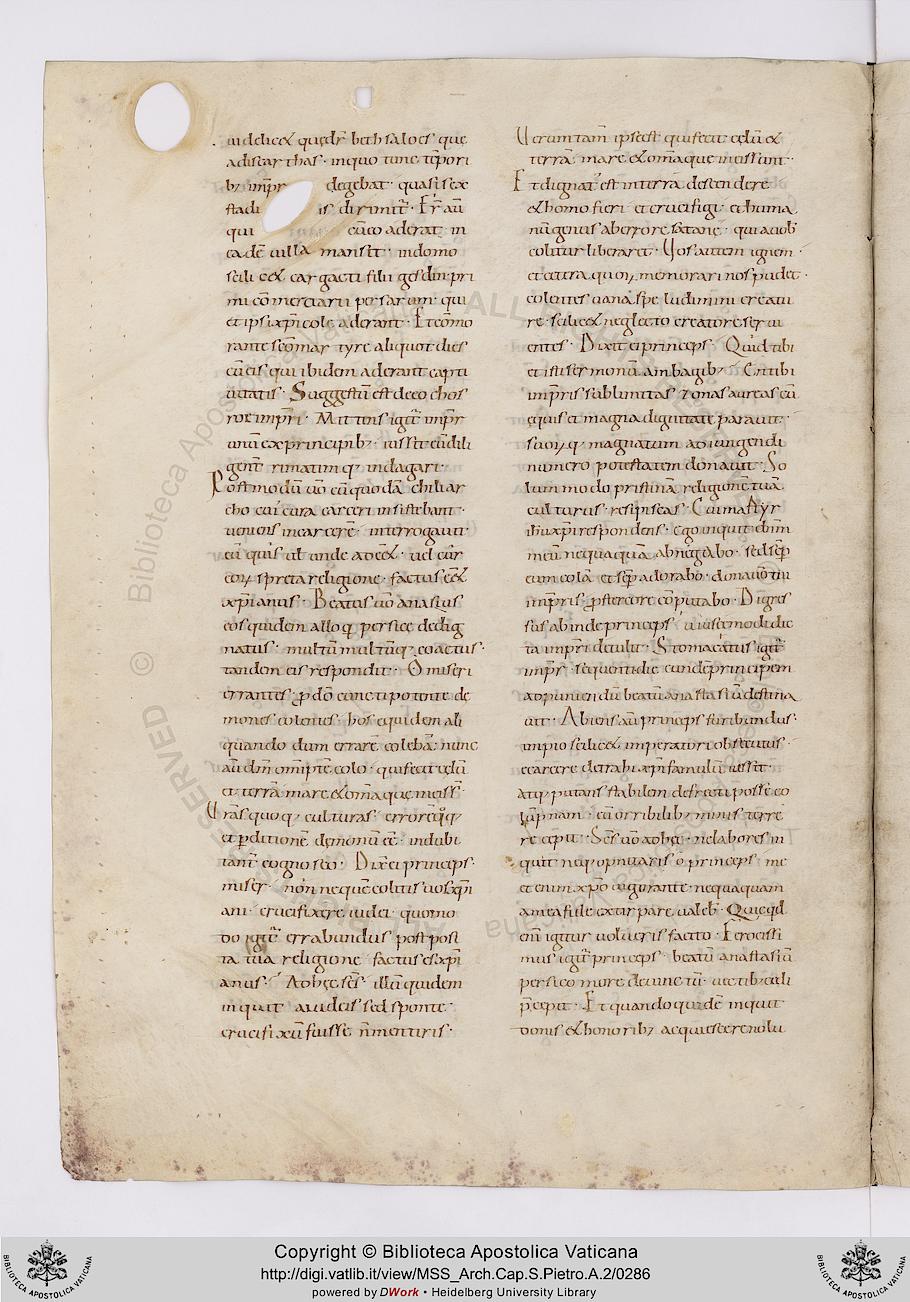 uidelicet quedr bethsaloes que
adiscarthas · inquo tunc tēpori
b; impr degebat · quasi sex
stadi is dirimit · Fr̄ au
qui cūco aderat in
eadē uilla manset · indomo
scilicet cargacti filii gesdin pri
mi cōmerciarii persarum · qui
et ipsi xp̄icole aderant · Et cōmo
rante scō mar tyre aliquot dies
cū eis qui ibidem aderant capti
uitatis · Suggestū est deeo chos
roe imp̄ri · Mittens igit̄ imp̄r
unū ex principib; · iussit eū dili
gent̄ rimatim q; indagari ·
Postmodū uō cū quodā chiliar
cho cui cura carceri insistebant ·
ueniens incarcerē · interrogauit ·
eū quis ul̄ unde adeēt · uel cur
eoꝝ spreta religione · factus eēt
xp̄ianus · Beatus uō anasius
eos quidem alloq̄ persice dedig
natus · multū multūq; coactus ·
tandem eis respondit · O miseri
errantes ꝓ dō cunctipotente de
mones colentes · hos equidem ali
quando dum errarē colebā · nunc
aū dn̄m om̄ipt̄e colo · qui fecit celū
et terrā · mare et om̄ia que in eis s̄ ·
Uras quoq; culturas errorē q;
et ꝑditionē demonū eē · indubi
tant̄ cognosco · Dix̄ ei princeps ·
miser · non neque colitis uos xp̄i
ani · crucifixere iudei · quomo
do igit̄ errabundus post posi
ta tua religione factus es xp̄i
anus · Adhęc sc̄s · illū quidem
inquit a iudeis sed sponte ·
crucifixū fuisse n̄ mentiris ·
Uerumtam̄ ipse est qui fecit celū et
terrā mare et om̄ia que in eis sunt ·
Et dignat' est in terrā descendere
et homo fieri et crucifigi · et huma
nū genus ab errore satanę · qui a uob
colitur liberaret · Uos autem ignem ·
et cetera quoꝝ memorari nos pudet ·
colentes uana spe ludimini creatu
re · scilicet neglecto creatore serui
entes · Dixit ei princeps · Quid tibi
et istis ser monū ambagib; · En tibi
impris sublimitas zonas aureas cū
equis et magna dignitate parauit ·
suoꝝ q; magnatum adiungendi
numero potestatem donauit · So
lummodo pristinā religionē tuā
culturus · resipiscas · Cui martyr
ih̄u xp̄i respondens · Ego inquit dn̄m
meū nequaquā abnegabo · sed sēp
eum colā et sēp adorabo · dona uō tui
imp̄ris ꝓ stercore cōputabo · Digres
sus abinde princeps · uiuse modi dic
ta imp̄ri detulit · Stomacatus igit̄
imp̄r · sequenti die eundē principem
ad puniendū beatū anastasiū destina
uit · Abiens aū princeps furibundus ·
impio scilicet imperatori obsecutus ·
e carcere detrahi xp̄i famulū iussit ·
atq; putans stabilem defrecti posse co
lūpnam · cū orribilib; minis terre
re cepit · Sc̄s uō adhęc · ne labores in
quit neq; opinaris o princeps me
etenim xp̄o uigurante · nequaquam
antea fide extirpare ualeb · Quicqd
em̄ igitur uolueris facito · Ferocissi
mus igit̄ princeps · beatū anastasiū
persico more deuinctū · uectib; cedi
p̄cepit · Et quando quidē inquit
donis et honorib; acquiescere nolu
Copyright © Biblioteca Apostolica Vaticana
http://digi.vatlib.it/view/MSS_Arch.Cap.S.Pietro.A.2/0286
powered by DWork • Heidelberg University Library